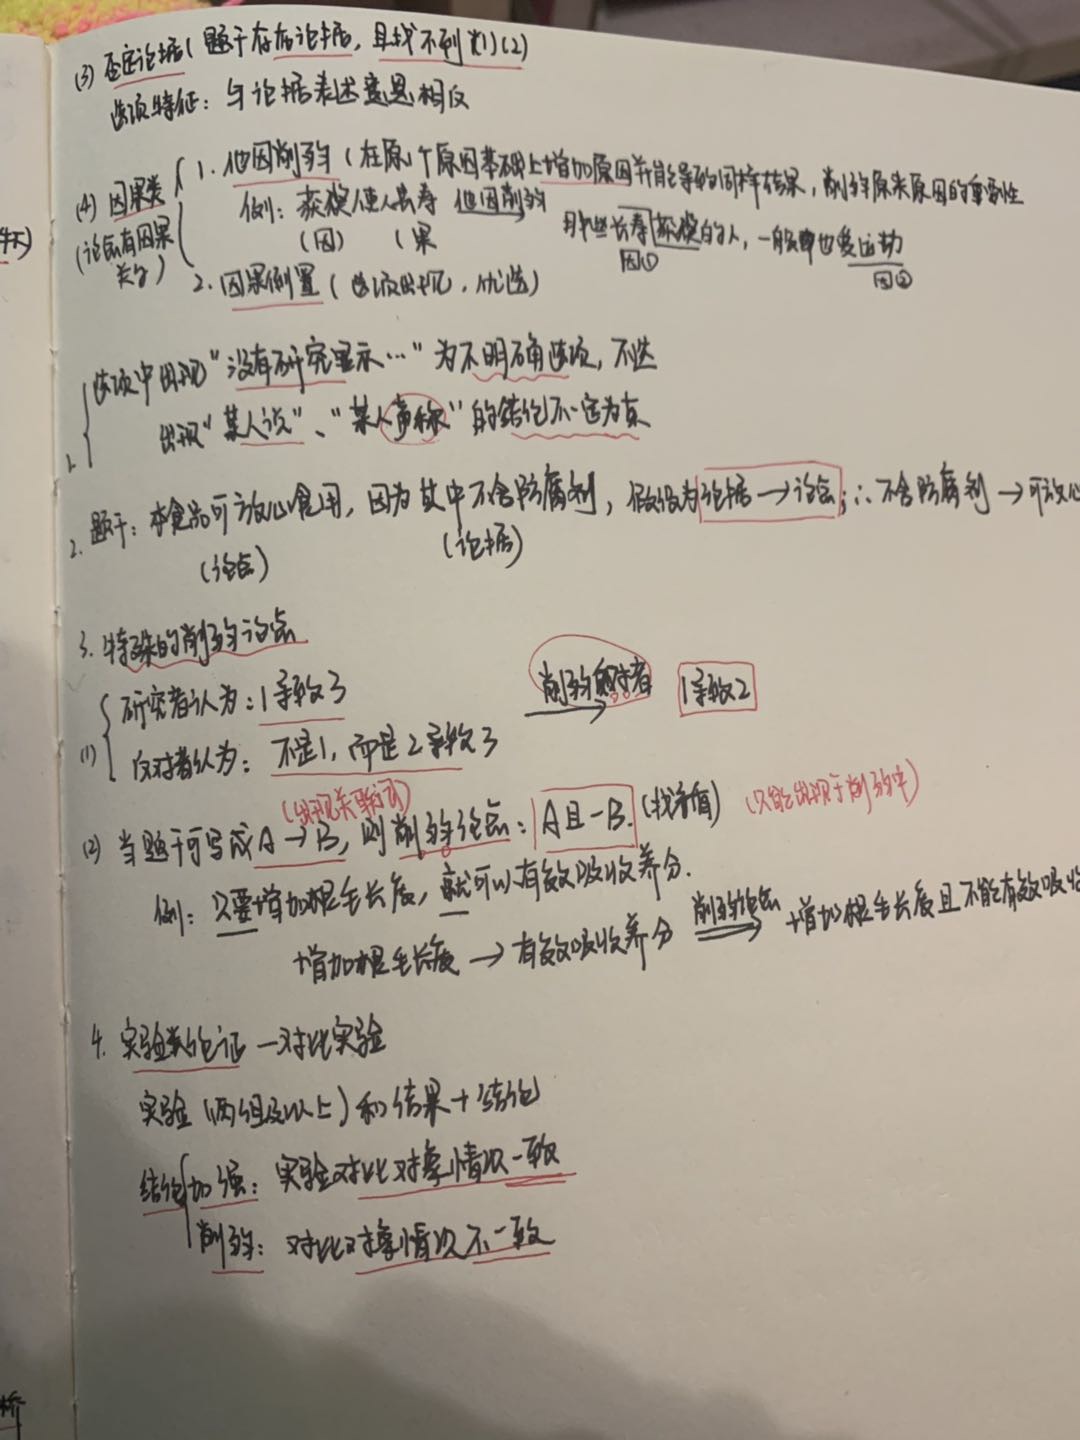 (3) 否定论据(题干存在论据，且找不到(1)(2)
选项特征：与论据表述意思相反
(4) 因果类
(论点有因果关系)
1. 他因削弱 (在原1个原因基础上增加原因并能导致同样结果，削弱原来原因的重要性
例：获奖使人长寿 他因削弱 那些长寿获奖的人，一般都也爱运动
(因) (果 因① 因②
2. 因果倒置 (选项出现，优选)
1. 选项中出现"没有研究显示…"为不明确选项，不选
出现"某人说"、"某人声称"的结论不一定为真
2. 题干：本食品可放心食用，因为其中不含防腐剂，假设为论据→论点；∴不含防腐剂→可放心
(论点) (论据)
3. 特殊的削弱论点
(1) 研究者认为：1导致3 削弱反对者 1导致2
反对者认为：不是1，而是2导致3
(出现关联词)
(2) 当题干可写成A→B，则削弱论点：A且-B. (找矛盾) (只能出现于削弱中)
例：只要增加根毛长度，就可以有效吸收养分.
增加根毛长度→有效吸收养分 削弱论点 增加根毛长度且不能有效吸收
4. 实验类论证—对比实验
实验(两组及以上)和结果+结论
结论 加强：实验对比对象情况一致
削弱：对比对象情况不一致
桥